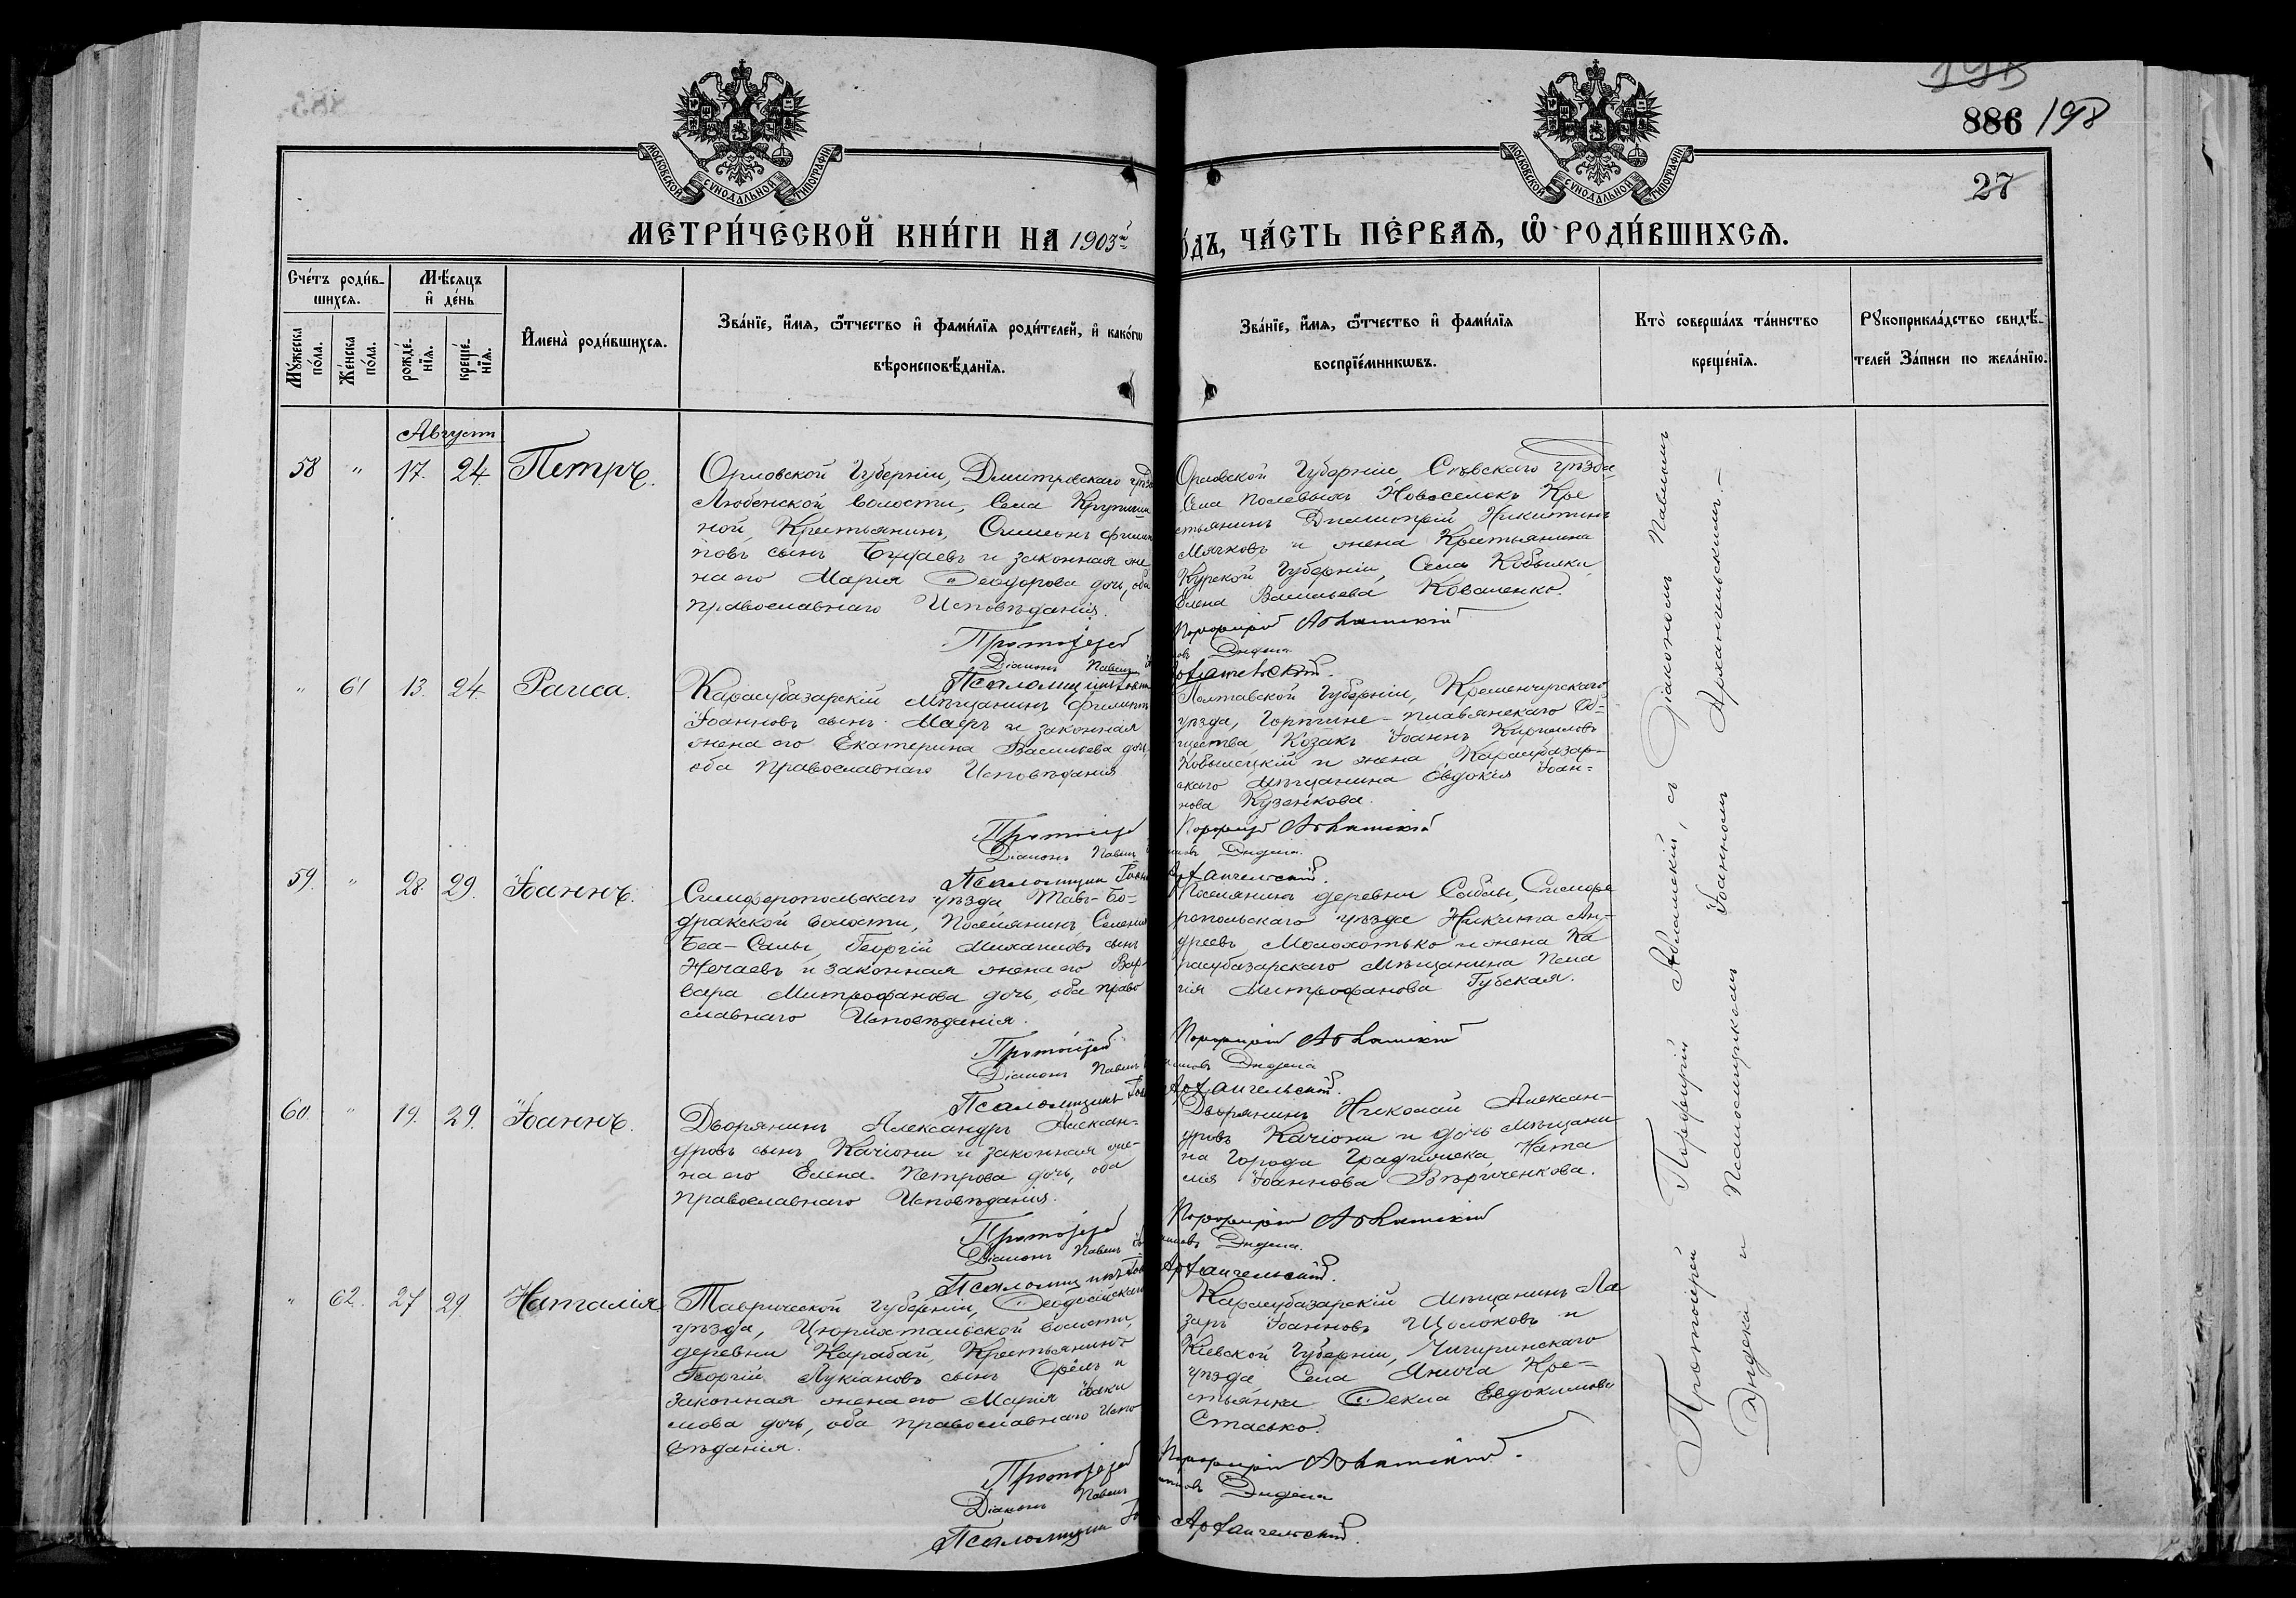 195
886 198
27
МОСКОВСКОЙ СѴНОДАЛЬНОЙ ТИПОГРАФІИ
МОСКОВСКОЙ СѴНОДАЛЬНОЙ ТИПОГРАФІИ
МЕТРИ́ЧЕСКОЙ КНИ́ГИ НА 1903й
О́ДЪ, ЧА́СТЬ ПЕ́РВАѦ, Ѽ РОДИ́ВШИХСѦ.
Сче́тъ роди́в-
шихсѧ.
Мꙋ́жеска
по́ла.
Же́нска
по́ла.
Мѣ́сѧцъ
и҆ де́нь
рожде́-
нїѧ.
креще́-
нїѧ.
И҆мена̀ роди́вшихсѧ.
Зва́нїе, и҆́мѧ, ѻ҆́тчество и҆ фами́лїѧ роди́телей, и҆ како́гѡ
вѣроисповѣ́данїѧ.
Зва́нїе, и҆́мѧ, ѻ҆́тчество и҆ фами́лїѧ
воспрїе́мникѡвъ.
Кто̀ соверша́лъ та́инство
креще́нїѧ.
Рꙋкоприкла́дство свидѣ́-
телей За́писи по жела́нїю.
Августъ
58 " 17. 24 Петръ.
Орловской Губерніи, Дмитровскаго уѣзд
Любенской волости, Села Крупыши
ной, Крестьянинъ, Симеонъ Филип
повъ сынъ Будаевъ и законная же
на его Марія Ѳеодорова дочь, оба
православнаго Исповѣданія.
Протоіерей
Діаконъ Павелъ
Псаломщикъ Іоан
Орловской Губерніи Сѣвскаго уѣзда
Села Полевыхъ Новоселокъ Кре
стьянинъ Димитрій Никитинъ
Мячковъ и жена Крестьянина
Курской Губерніи, Села Кобылки
Елена Васильева Коваленко.
Порфирій Авламскій
Эндека
Архангельскій.
" 61 13. 24 Раиса.
Карасубазарскій Мѣщанинъ Филиппъ
Іоанновъ сынъ Мазръ и законная
жена его Екатерина Васильева дочь,
оба православнаго Исповѣданія
Протоіерей
Діаконъ Павелъ
Псаломщикъ Іоан
Полтавской Губерніи, Кременчугскаго
уѣзда, Горпине-плавянскаго Об=
щества, Козакъ Іоаннъ Кирилловъ
Кобылецкій и жена Карасубазар-
скаго Мѣщанина Евдокія Іоан=
нова Кузенкова.
Порфирій Авламскій
Эндека.
Архангельскій.
59. " 28. 29. Іоаннъ.
Симферопольскаго уѣзда Тавъ-Бо=
дракской волости, Поселянинъ, Селенія
Беа-Салы, Георгій Михаиловъ сынъ
Нечаевъ и законная жена его Вар-
вара Митрофанова дочь, оба право
славнаго Исповѣданія.
Протоіерей
Діаконъ Павелъ
Псаломщикъ Іоан
Поселянинъ деревни Саблы, Симфе
ропольскаго уѣзда Никита Ан,-
дреевъ Молохотько и жена Ка
расубазарскаго Мѣщанина Пела
гія Митрофанова Губская.
Порфирій Авламскій
Эндека
Архангельскій.
60 " 19. 29. Іоаннъ.
Дворянинъ Александръ Алексан=
дровъ сынъ Качіони и законная же-
на его Елена Петрова дочь, оба
православнаго Исповѣданія.
Протоіерей
Діаконъ Павелъ
Псаломщикъ Іоан
Дворянинъ Николай Алексан-
дровъ Качіони и дочь мѣщани
на Города Градижска Ната
лія Іоаннова Вѣриченкова.
Порфирій Авламскій
Эндека.
Архангельскій.
" 62. 27 29. Наталія
Таврической губерніи, Ѳеодосійскаго
уѣзда, Цюрихтальской волости,
деревни Карабай, Крестьянинъ
Георгій Лукіановъ сынъ Орёлъ и
законная жена его Марія Іоаки
мова дочь, оба православнаго Испо
вѣданія.
Протоіерей
Діаконъ Павелъ
Псаломщикъ
Карасубазарскій Мѣщанинъ Ла
заръ Іоанновъ Щолоковъ и
Кіевской Губерніи, Чигиринскаго
уѣзда Села Янича Кре-
стьянка Ѳекла Евдокимова
Стасько.
Порфирій Авламскій.
Эндека
Архангельскій.
Протоіерей Порфирій Авламскій, съ Діакономъ Павломъ
Эндека и Псаломщикомъ Іоанномъ Архангельскимъ.-